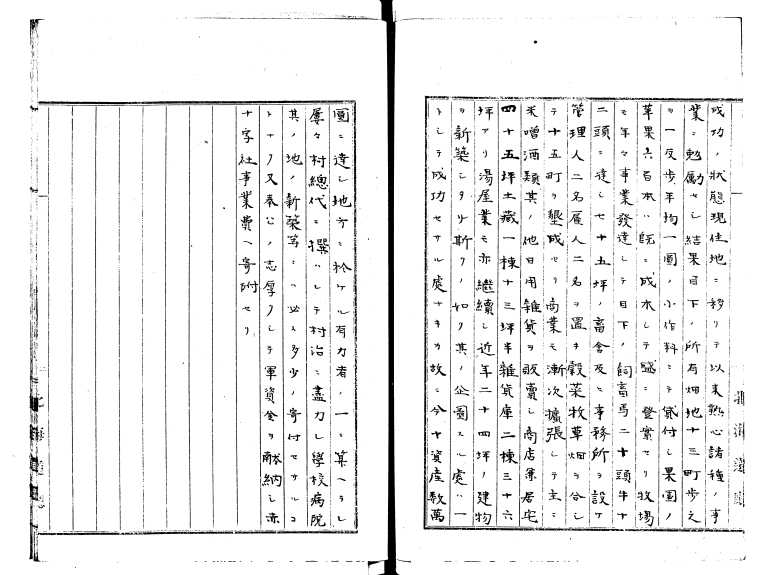 成功ノ狀態現住地ニ移リテ以来熱心諸種ノ事
業ニ勉勵セシ結果目下ノ所有畑地十三町歩之
ヲ一反歩年均一圓ノ小作料ニテ貸付シ果園ノ
苹果六百本ハ既ニ成木シテ盛ニ登實セリ牧場
モ年々事業發達シテ目下ノ飼畜馬二十頭牛十
二頭ニ達シ七十五坪ノ畜舎及ヒ事務所ヲ設ケ
管理人二名雇人二名ヲ置キ穀菜牧草畑ヲ合シ
テ十五町ヲ墾成セリ商業モ漸次擴張シテ主ニ
米噌酒類其ノ他日用雑貨ヲ販賣シ商店兼居宅
四十五坪土藏一棟十三坪半雑貨庫二棟三十六
坪アリ湯屋業モ亦繼續シ近年二十四坪ノ建物
ヲ新築シタリ斯クノ如ク其ノ企圖スル處ハ一
トシテ成功セサル處ナキカ故ニ今ヤ資産数萬
圓ニ達シ地方ニ於ケル有力者ノ一ニ算ヘラレ
屡々村總代ニ撰ハレテ村治ニ盡力シ學校病院
其ノ他ノ新築等ニハ必ス多少ノ寄付セサルコ
トナク又奉公ノ志厚クシテ軍資金ヲ献納シ赤
十字社事業費ヘ寄附セリ